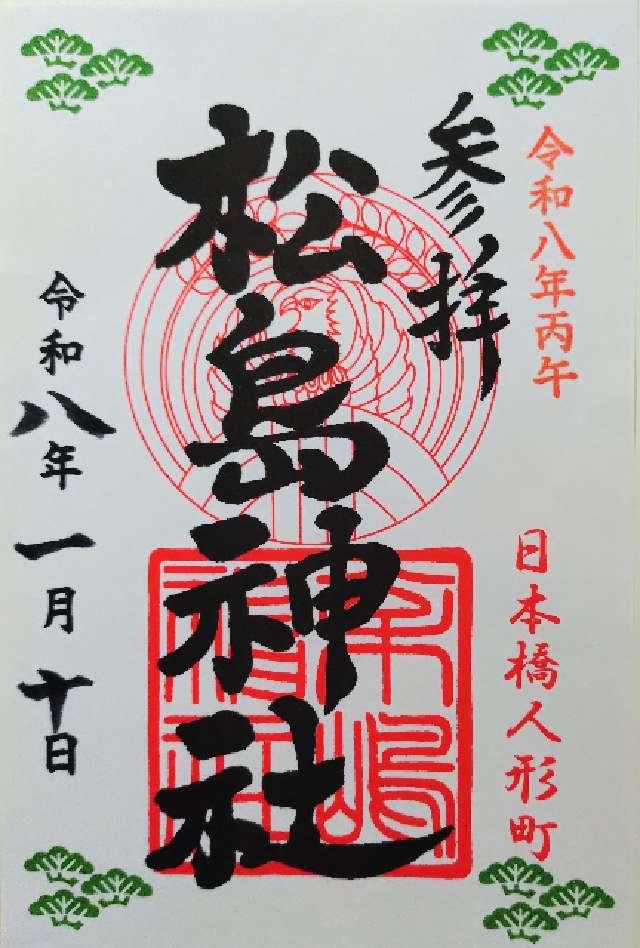 令和八年丙午
日本橋人形町
参拝
松島神社
令和八年一月十日